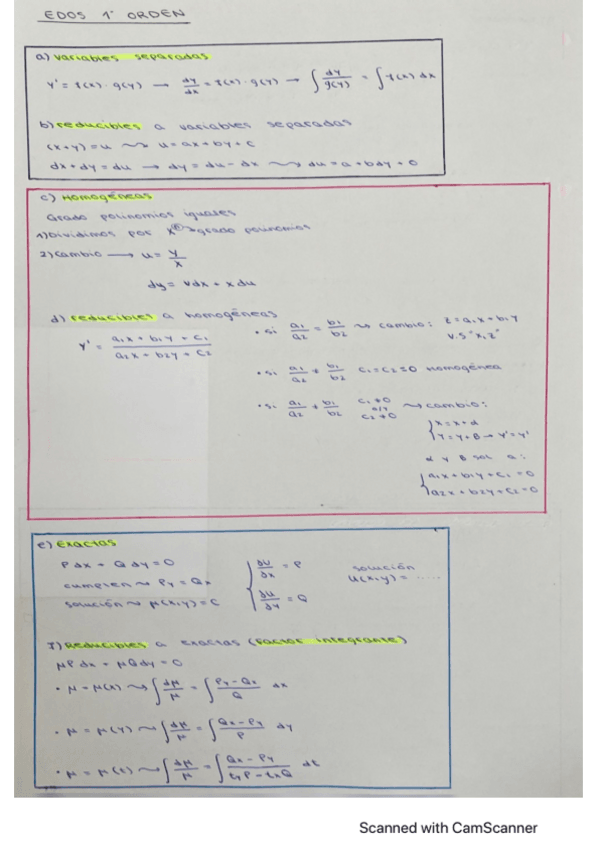 EDOS 1º ORDEN
a) variables separadas
y' = f(x) · g(y) → dy/dx = f(x) · g(y) → ∫ dy/g(y) = ∫ f(x) dx
b) reducibles a variables separadas
(x+y) = u ⇝ u = ax + by + c
dx + dy = du → dy = du - dx ⇝ du = a + bdy + 0
c) Homogéneas
Grado polinomios iguales
1) Dividimos por x → grado polinomios
2) cambio → u = y/x
dy = udx + x du
d) reducibles a homogéneas
y' = a₁x + b₁y + c₁ / a₂x + b₂y + c₂
• si a₁/a₂ = b₁/b₂ ⇝ cambio: z = a₁x + b₁y
v.s "x, z"
• si a₁/a₂ ≠ b₁/b₂ c₁ = c₂ = 0 homogénea
• si a₁/a₂ ≠ b₁/b₂ c₁ ≠ 0 o/y c₂ ≠ 0 ⇝ cambio:
{ x = x + α
y = y + β → y' = y'
α y β sol a:
{ a₁x + b₁y + c₁ = 0
a₂x + b₂y + c₂ = 0
e) Exactas
P dx + Q dy = 0
cumplen ⇝ Py = Qx
solución ⇝ μ(x,y) = C
{ ∂U/∂x = P
∂U/∂y = Q
solución
U(x,y) = .....
f) Reducibles a exactas (factor integrante)
μP dx + μQ dy = 0
• μ = μ(x) ⇝ ∫ dμ/μ = ∫ Py - Qx / Q dx
• μ = μ(y) ⇝ ∫ dμ/μ = ∫ Qx - Py / P dy
• μ = μ(t) ⇝ ∫ dμ/μ = ∫ Qx - Py / tyP - txQ dt
Scanned with CamScanner